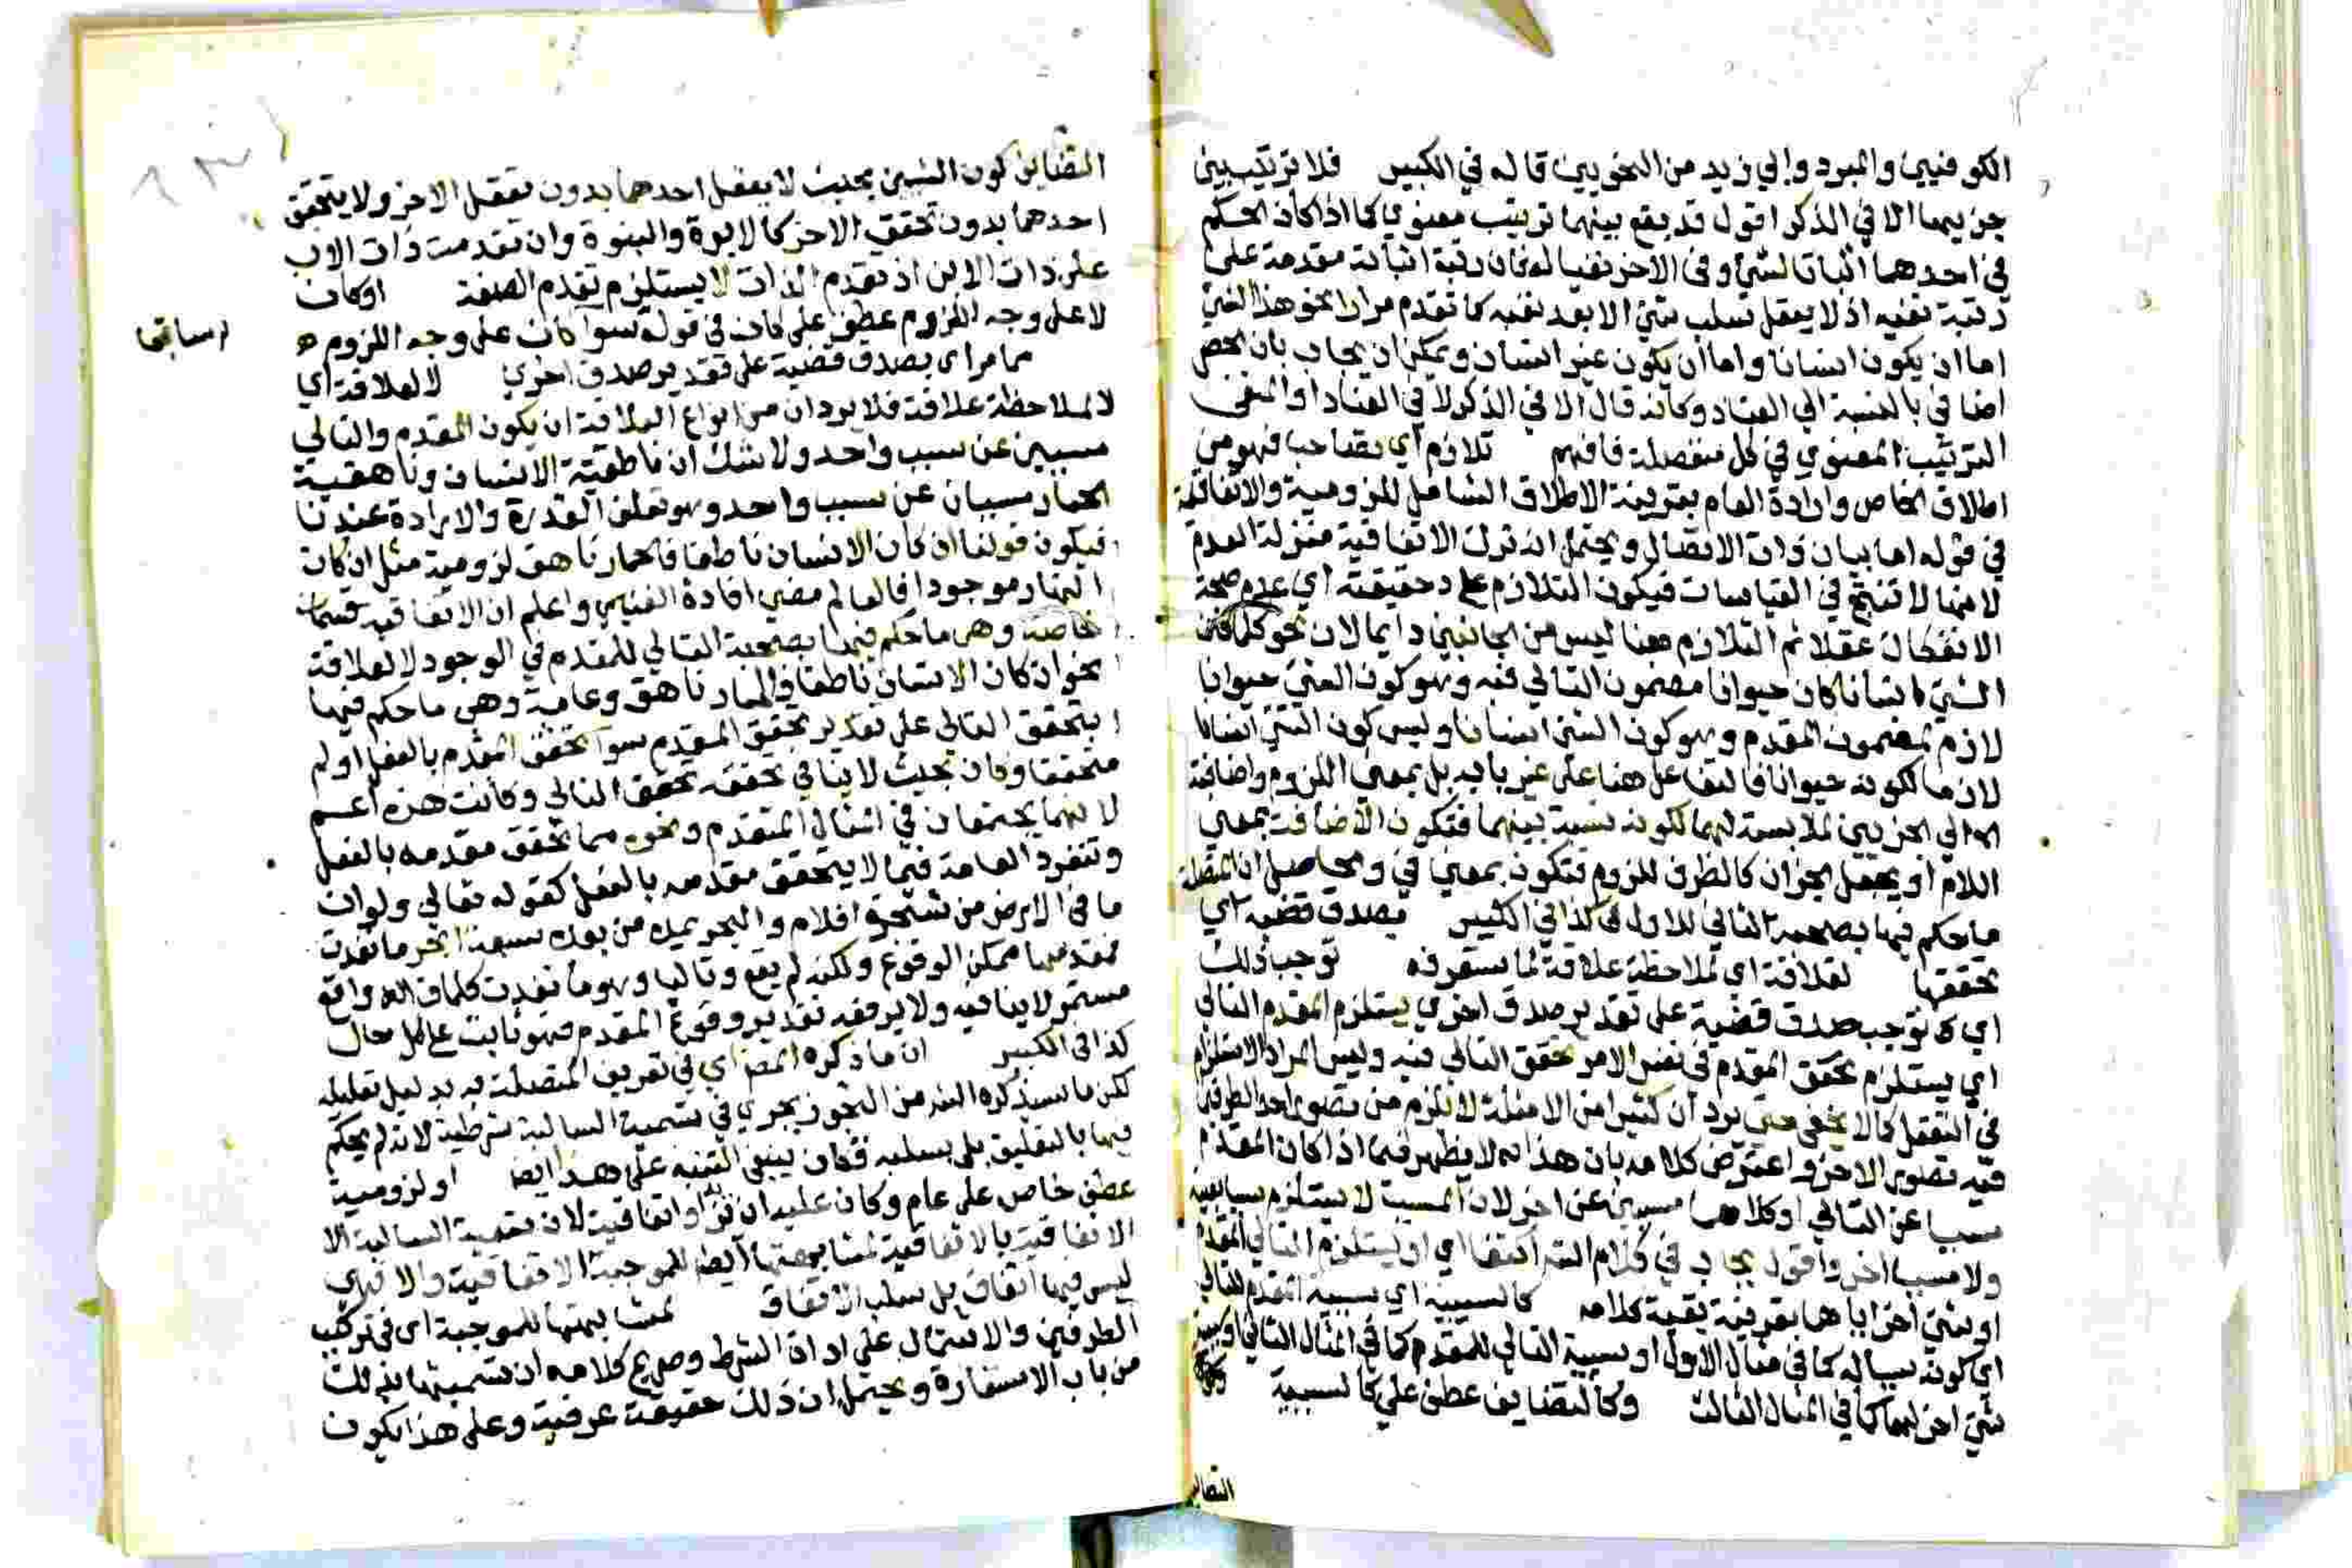 الكوفيين والمبرد وابي زيد من النحويين قاله في الكبير فلا ترتيب بين
جزييهما الا في الذكر اقول قد يقع بينهما ترتيب معنوي كما اذا كان الحكم
في احدهما اثباتا لشئ وفي الاخر نفيا له فان رتبة اثباته مقدمة على
رتبة نفيه اذ لا يعقل سلب شئ الا بعد نفيه كما تقدم مرارا نحو هذا الشئ
اما ان يكون انسانا واما ان يكون غير انسان ويمكن ان يجاب بان الحصر
اضافي بالنسبة الي العناد وكانه قال الا في الذكر لا في العناد او المنفى
الترتيب المعنوي في كل منفصلة فافهم تلازم اي تصاحب فهو من
اطلاق الخاص وارادة العام بقرينة الاطلاق الشامل للزومية والاتفاقية
في قوله اما بيان ذات الاتصال ويحتمل انه نزل الاتفاقية منزلة العدم
لانها لا تنتج في القياسات فيكون التلازم على حقيقته اي عدم صحة
الانفكاك عقلا ثم التلازم هنا ليس من الجانبين دايما لان نحو كلما كان
الشئ انسانا كان حيوانا مضمون التالي فيه وهو كون الشئ حيوانا
لازم لمضمون المقدم وهو كون الشئ انسانا وليس كون الشئ انسانا
لازما لكونه حيوانا فالتفاعل هنا على غير بابه بل بمعنى اللزوم واضافته
الي الجزيين لملابسته لهما لكونه نسبة بينهما فتكون الاضافة بمعني
اللام او يجعل الجزان كالظرف للزوم فتكون بمعني في والحاصل ان المتصلة
ما حكم فيها بصحبة التالي للاول كذا في الكبير بصدق قضية اي
تحققها لعلاقة اي لملاحظة علاقة لما ستعرفه توجب ذلك
اي توجب صدق قضية على تقدير صدق اخري يستلزم المقدم التالي
اي يستلزم تحقق المقدم في نفس الامر تحقق التالي فيه وليس المراد الاستلزام
في التعقل كما لا يخفى حتى يرد ان كثيرا من الامثلة لا يلزم من تصور احد الطرفين
فيه تصور الاخر واعترض كلامه بان هذا لا يظهر فيما اذا كان المقدم
سببا عن التالي او كلاهما مسببين عن اخر لان المسبب لا يستلزم سببا بعينه
ولا مسببا اخر واقول يجاب في كلام الشر اكتفا اي او يستلزم التالي المقدم
او شئ اخر اياهما بقرينة بقية كلامه كالسببية اي سببية المقدم للتالي
اي كونه سببا له كما في مثال الاول او سببية التالي للمقدم كما في المثال الثاني او سببية
شئ اخر لهما كما في المثال الثالث وكالتضايف عطف علي كالسببية
التضايف
التضايف كون الشيئين بحيث لا يعقل احدهما بدون تعقل الاخر ولا يتحقق
احدهما بدون تحقق الاخر كالابوة والبنوة وان تقدمت ذات الاب
على ذات الابن اذ تقدم الذات لا يستلزم تقدم الصفة او كان
لا على وجه اللزوم عطف على كان في قوله سوا كان على وجه اللزوم
سابقا
مما مر اي بصدق قضية على تقدير صدق اخري لا لعلاقة اي
لا لملاحظة علاقة فلا يرد ان من انواع العلاقة ان يكون المقدم والتالي
مسببين عن سبب واحد ولا شك ان ناطقية الانسان وناهقية
الحمار مسببان عن سبب واحد وهو تعلق القدرة والارادة عندنا
فيكون قولنا ان كان الانسان ناطقا فالحمار ناهق لزومية مثل ان كان
النهار موجودا فالعالم مضي افادة الغنيمي واعلم ان الاتفاقية قسمان
خاصة وهي ما حكم فيها بصحبة التالي للمقدم في الوجود لا لعلاقة
نحو ان كان الانسان ناطقا فالحمار ناهق وعامة وهي ما حكم فيها
بتحقق التالي على تقدير تحقق المقدم سوا تحقق المقدم بالفعل او لم
متحققا وكان بحيث لا ينافي تحققه تحقق التالي وكانت هذه اعم
لانهما يجتمعان في المثال المتقدم ونحوه مما تحقق مقدمه بالفعل
وتنفرد العامة فيما لا يتحقق مقدمه بالفعل كقوله تعالي ولو ان
ما في الارض من شجرة اقلام والبحر يمده من بعده سبعة ابحر ما نفدت
فمقدمها ممكن الوقوع ولكنه لم يقع وتاليها وهو ما نفدت كلمات الله واقع
مستمر لا ينافيه ولا يرفعه تقدير وقوع المقدم فهو ثابت على كل حال
كذا في الكبير ان ما ذكره المص اي في تعريف المتصلة به بدليل تعليله
لكن ما سيذكره الشر من التجوز يجري في تسمية السالبة شرطية لانه لم يحكم
فيها بالتعليق بل بسلبه فكان ينبغي التنبه على هذا ايضا او لزومية
عطف خاص على عام وكان عليه ان يزيد او اتفاقية لان تسمية السالبة الا
الاتفاقية بالاتفاقية لمشابهتها ايضا للموجبة الاتفاقية والا فهي
ليس فيها اتفاق بل سلب الاتفاق لمشابهتها للموجبة اي في تركيب
الطرفين والاشتمال على اداة الشرط وصريح كلامه ان تسميتها بذلك
من باب الاستعارة ويحتمل ان ذلك حقيقة عرفية وعلى هذا يكون